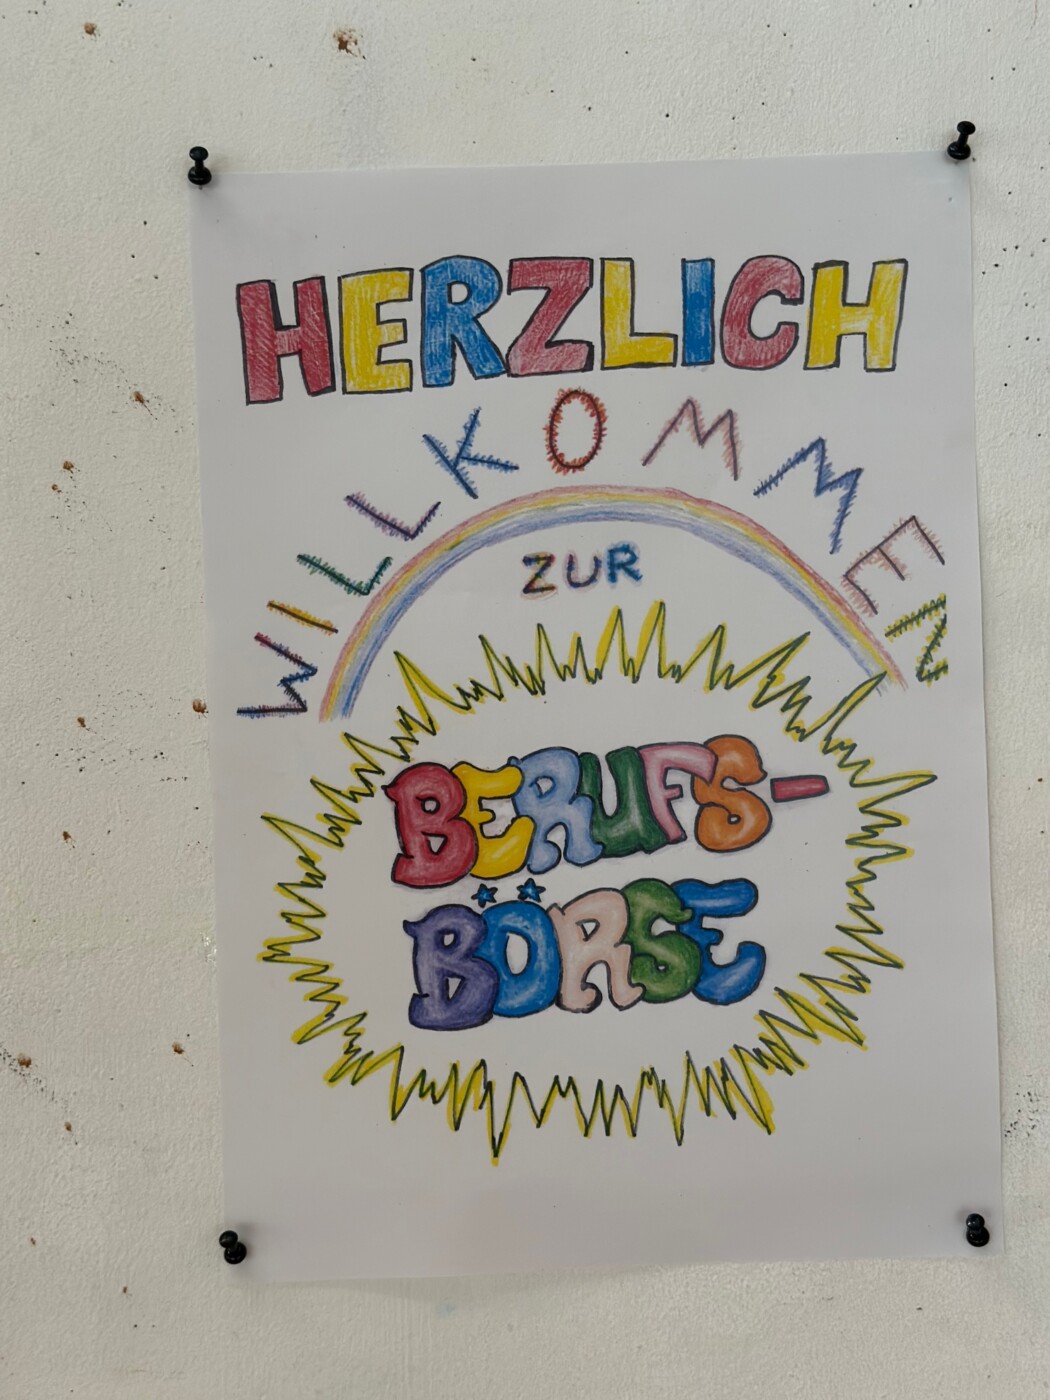 HERZLICH
WILLKOMMEN
ZUR
BERUFS-
BÖRSE